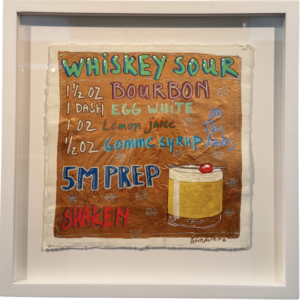 WHISKEY SOUR
1 1/2 OZ BOURBON
1 DASH EGG WHITE
1 OZ Lemon juice
1/2 OZ Gomme syrup
5M PREP
SHAKEN